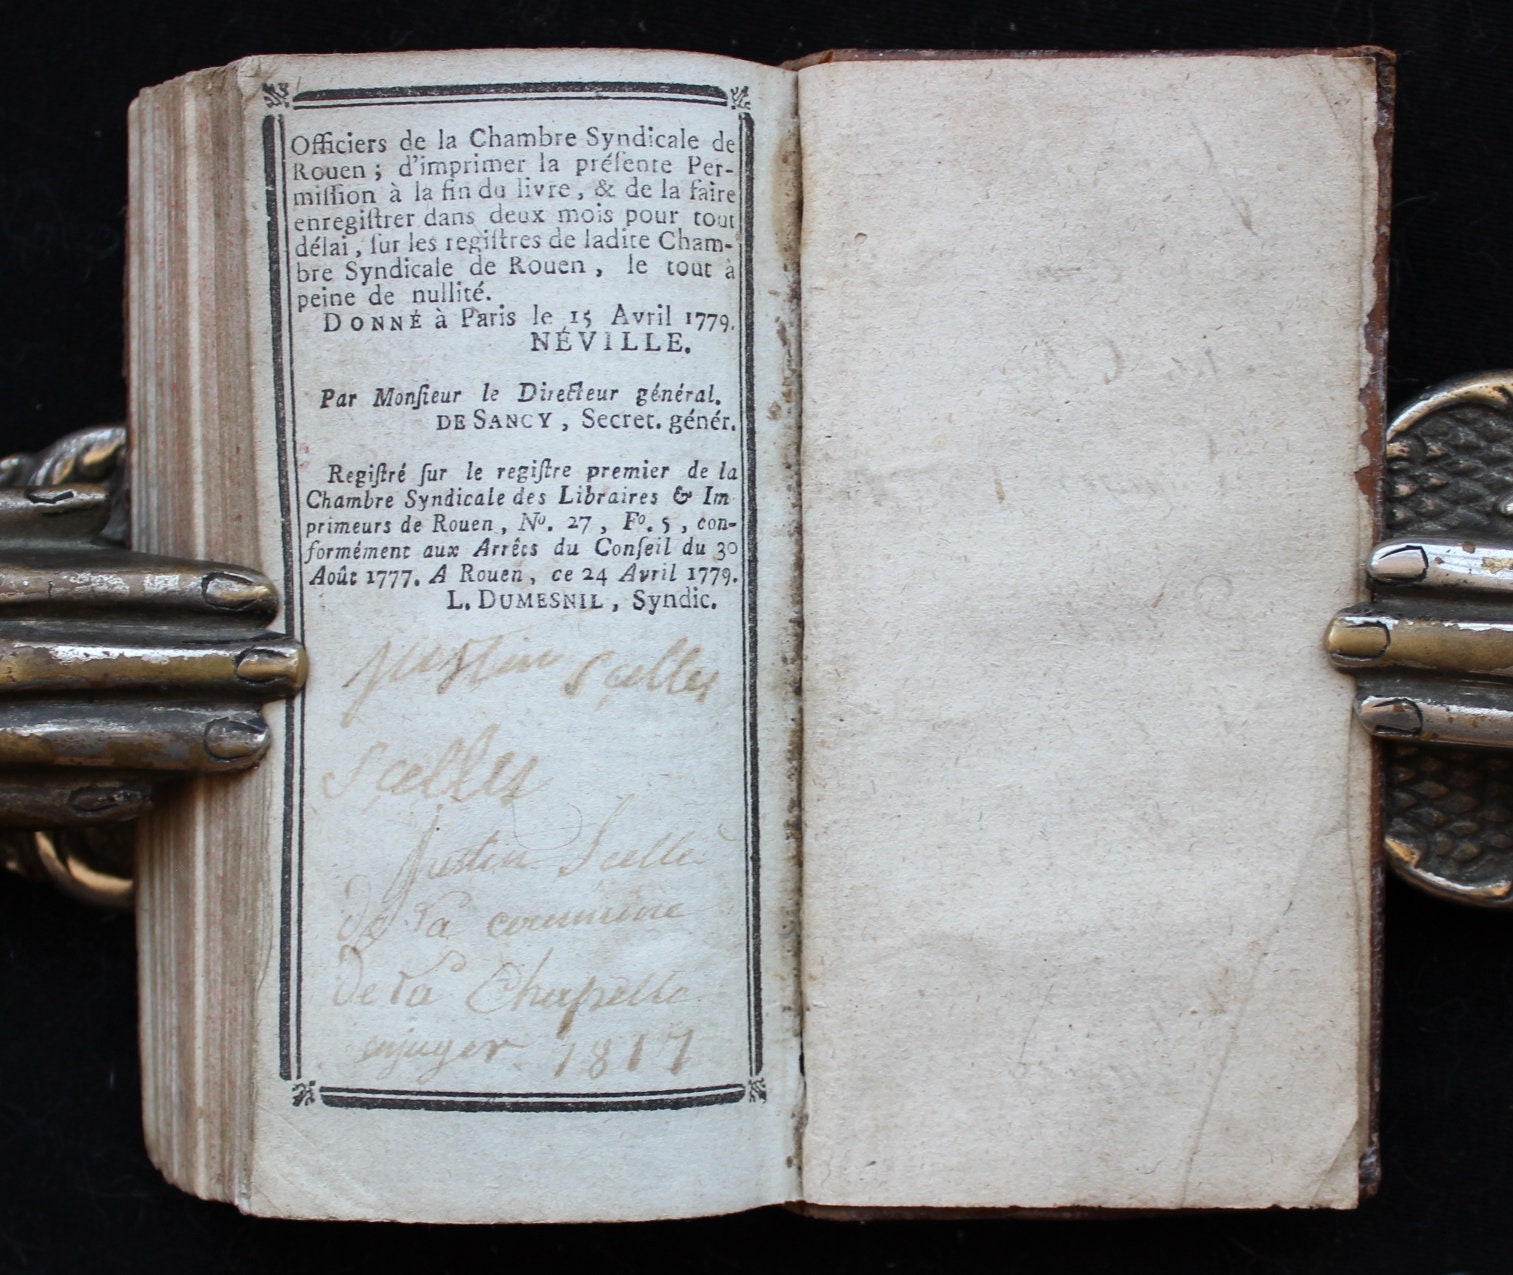 Officiers de la Chambre Syndicale de
Rouen ; d'imprimer la préſente Per-
miſſion à la fin du livre, & de la faire
enregiſtrer dans deux mois pour tout
délai, ſur les regiſtres de ladite Cham-
bre Syndicale de Rouen, le tout à
peine de nullité.
DONNÉ à Paris le 15 Avril 1779.
NÉVILLE.
Par Monſieur le Directeur général.
DE SANCY, Secret. génér.
Regiſtré ſur le regiſtre premier de la
Chambre Syndicale des Libraires & Im
primeurs de Rouen, Nº. 27, Fº. 5, con-
formément aux Arrêts du Conſeil du 30
Août 1777. A Rouen, ce 24 Avril 1779.
L. DUMESNIL, Syndic.
justin Scelles
Scelles
justin Scelle
de la commune
de la Chapelle
enjuger 1817